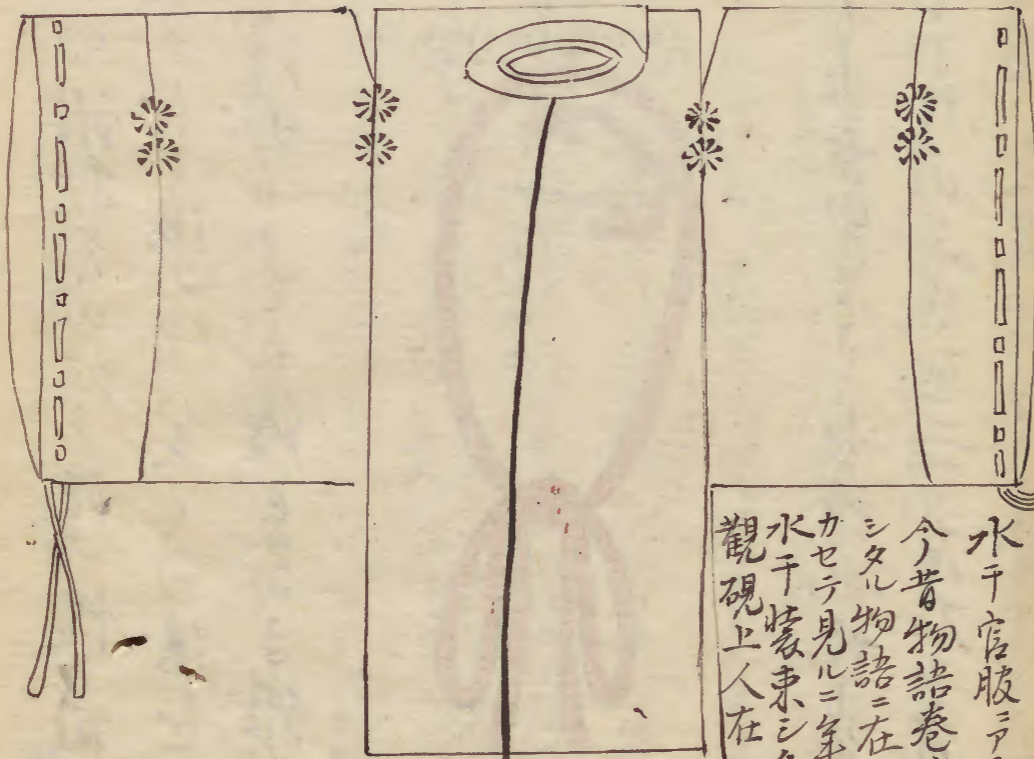 水干官服ニア
今昔物語巻
シタル物語ニ在
カセテ見ルニ年
水干装束シタ
観硯上人在